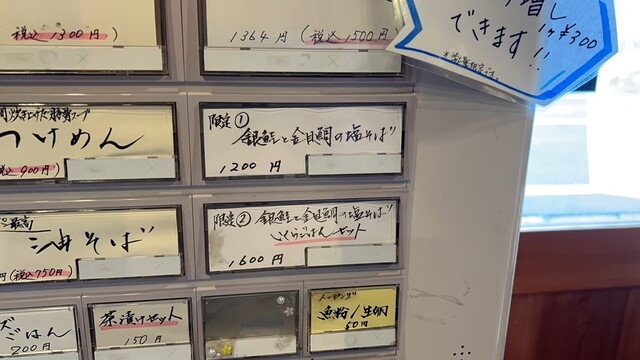 税込1300円
1364円(税込1500円)
増し
できます!!
1ヶ¥300
つけめん
税込900円
限定① 銀鮭と金目鯛の塩そば
1200円
限定② 銀鮭と金目鯛の塩そば
いくらごはんセット
1600円
油そば
円(税込750円)
ごはん
200円
茶漬けセット
150円
トッピング
魚粉/生胡
60円